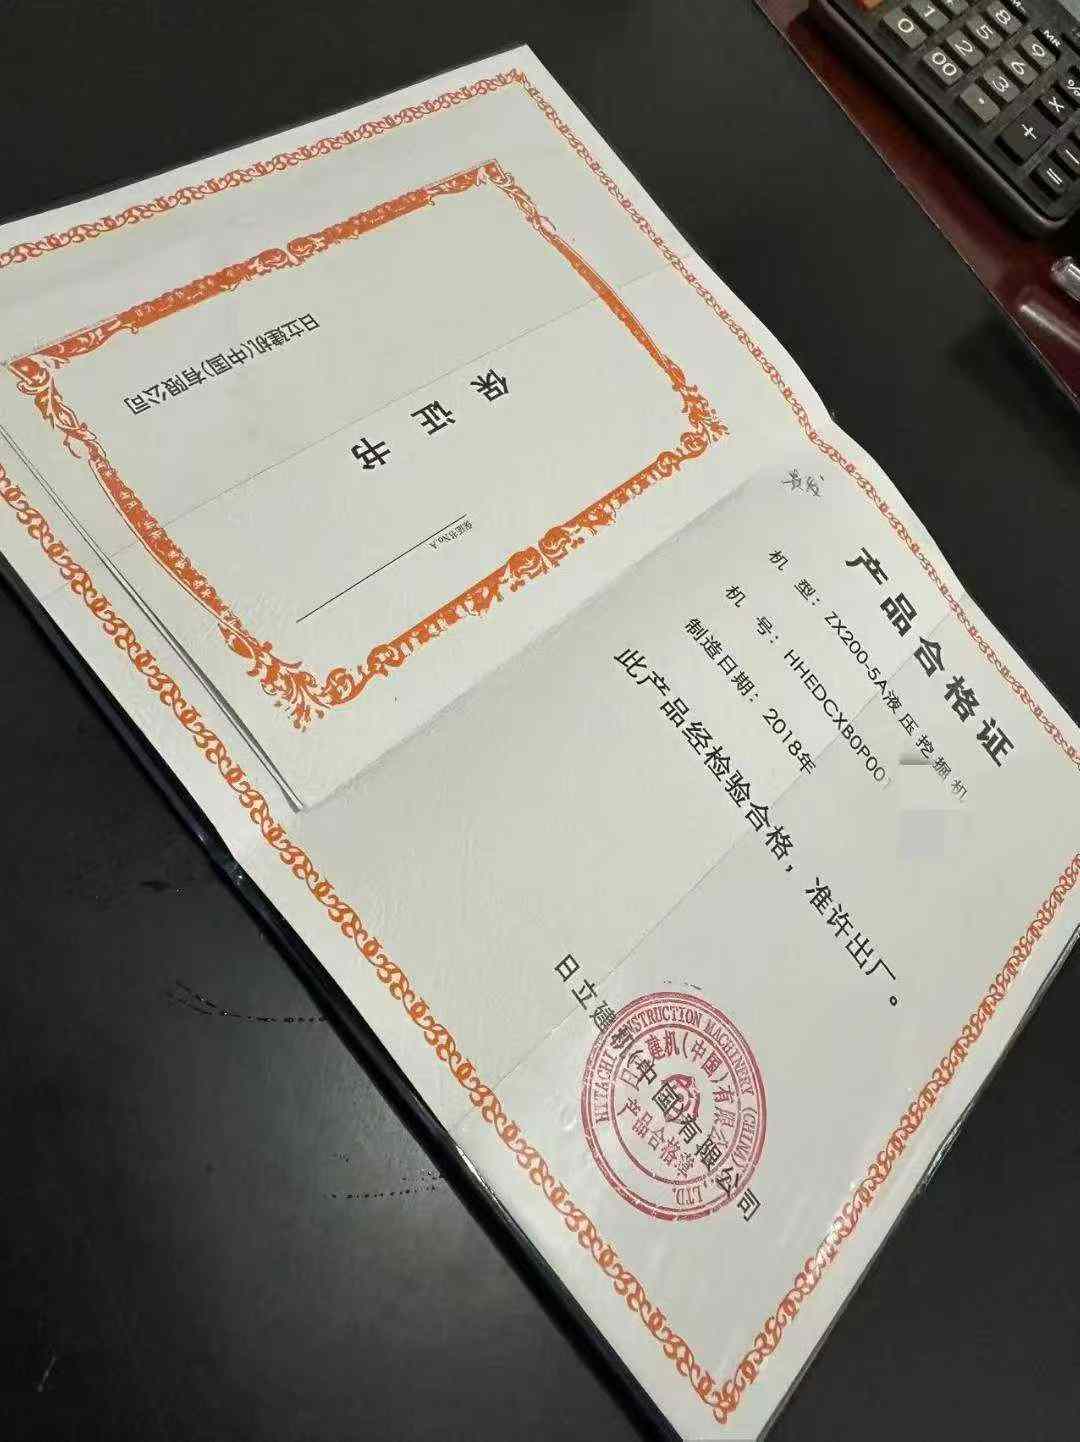 产品合格证
机 型：ZX200-5A液压挖掘机
机 号：HHEDCXB0P001
制造日期：2018年
此产品经检验合格，准许出厂。
日立建机(中国)有限公司
HITACHI CONSTRUCTION MACHINERY (CHINA) CO., LTD.
日立建机(中国)有限公司
产品合格章
保证书
保证书No.A
日立建机(中国)有限公司
0 1 8 MR
00 2 5 9
. 3 6 %
+ × − =